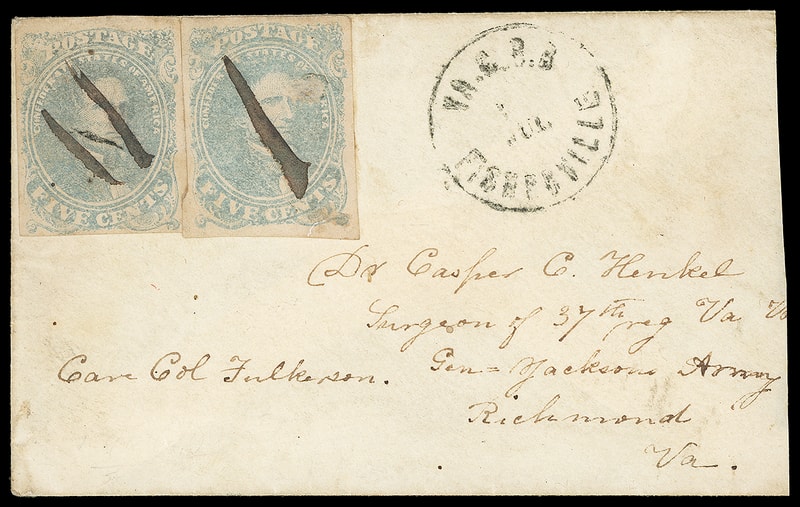 POSTAGE
CONFEDERATE STATES OF AMERICA
FIVE CENTS
POSTAGE
CONFEDERATE STATES OF AMERICA
FIVE CENTS
VA. C. R. R
JUL
FISHERSVILLE
Dr Casper C. Henkel
Surgeon of 37th reg Va
Care Col Fulkerson. Gen= Jacksons Army
Richmond
Va.